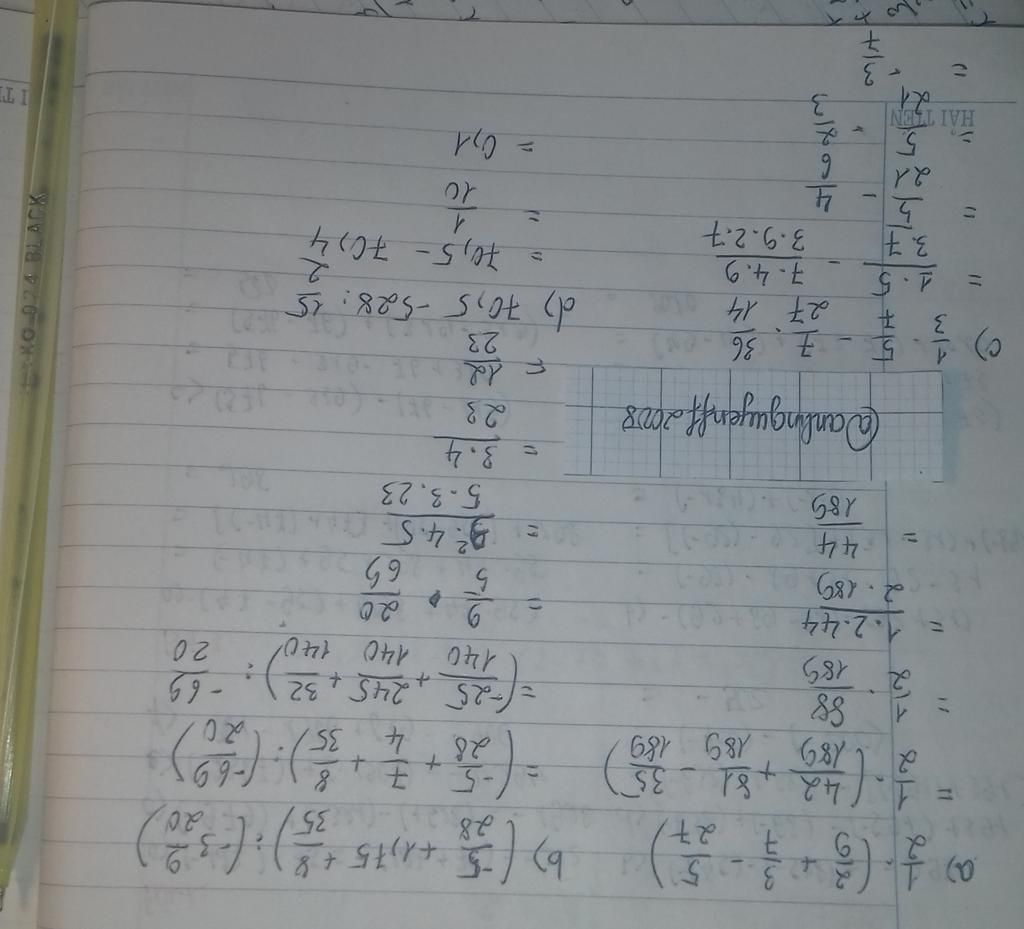 a) 1/2 . (2/9 + 3/7 - 5/27)
= 1/2 . (42/189 + 81/189 - 35/189)
= 1/2 . 88/189
= 1.2.44/2.189
= 44/189
b) (-5/28 + 1,75 + 8/35) : (-3 9/20)
= (-5/28 + 7/4 + 8/35) : (-69/20)
= (-25/140 + 245/140 + 32/140) : -69/20
= 9/5 . 20/69
= .4.5/5.3.23
= 3.4/23
= 12/23
@anhnguyenff2008
c) 1/3 . 5/7 - 7/27 . 36/14
= 1.5/3.7 - 7.4.9/3.9.2.7
= 5/21 - 4/6
= 5/21 - 2/3
= -3/7
d) 70,5 - 528 : 15/2
= 70,5 - 70,4
= 1/10
= 0,1
HẢI TIẾN
024 BLACK